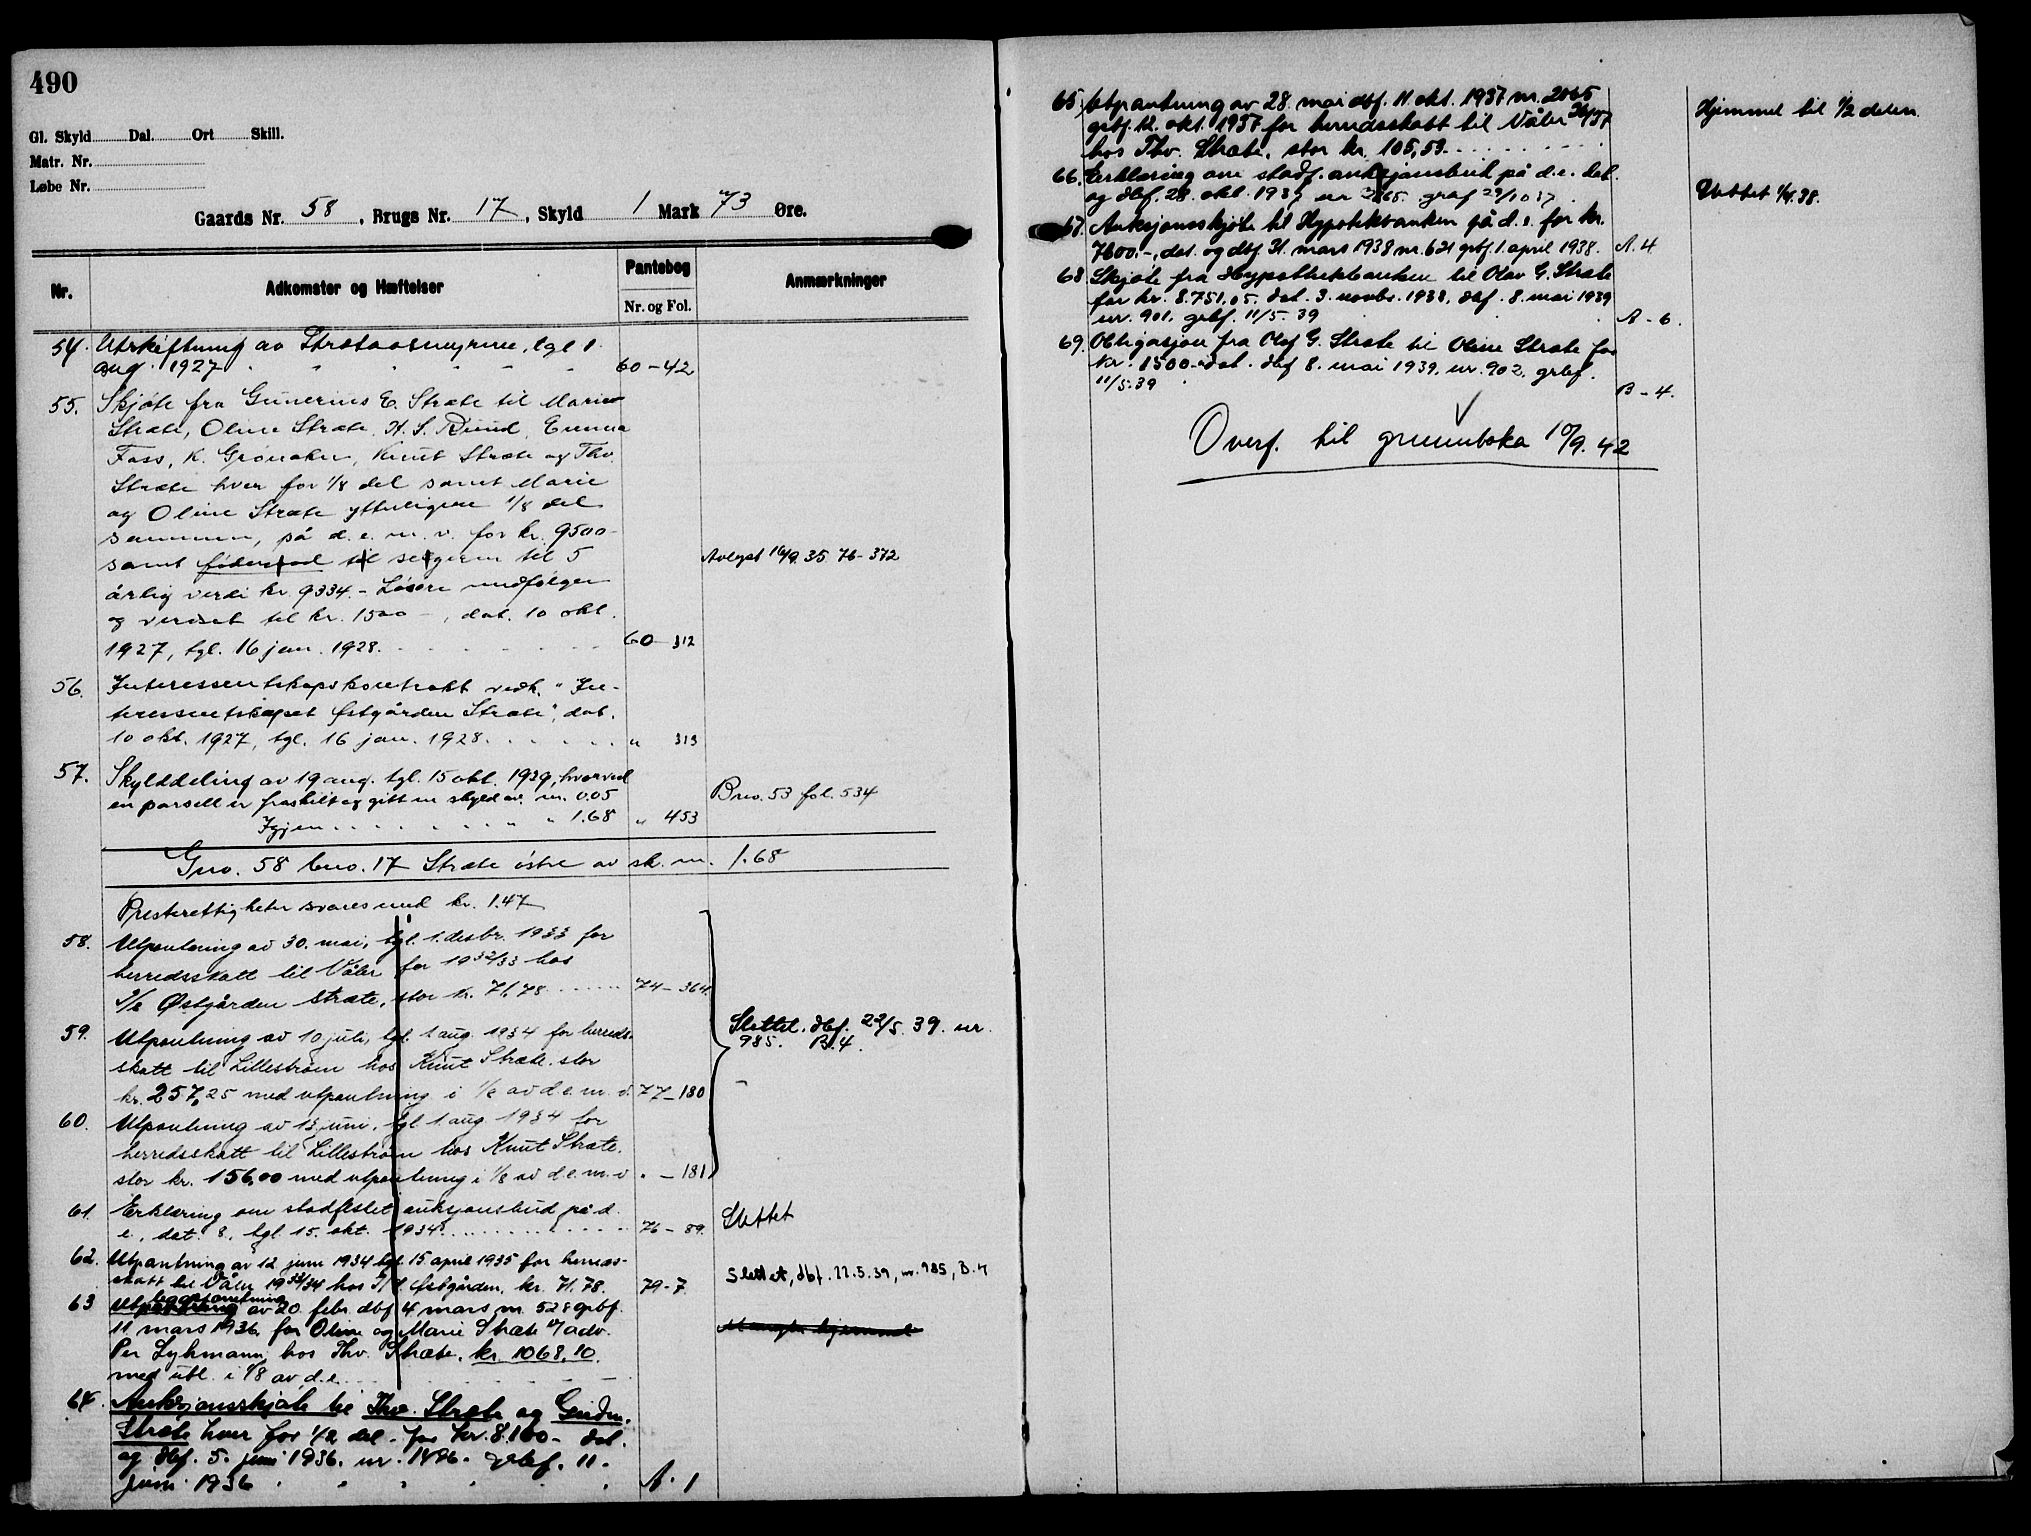 490
Gl. Skyld Dal. Ort Skill.
Matr. Nr.
Løbe Nr.
Gaards Nr. 58, Brugs Nr. 17, Skyld 1 Mark 73 Øre.
Nr. Adkomster og Hæftelser Pantebog Nr. og Fol. Anmærkninger
54. Utskiftning av Stræteaasmyrene, tgl 1
aug. 1927 60-42
55. Skjøte fra Gunerius E. Stræte til Marie
Stræte, Oline Stræte, H. S. Rund, Emma
Foss, K. Grønaker, Knut Stræte og Thv.
Stræte hver for 1/8 del samt Marie
og Oline Stræte ytterligere 1/8 del
sammen, på d. e. m. v. for kr. 9500-
samt føderaad til selgeren til 5 Avlyst 16/9.35 76-372
årlig verdi kr. 9334.- Løsøre medfølger
og verdsat til kr. 1500-, dat. 10 okt.
1927, tgl. 16 jan. 1928. 60-312
56. Interessentskapskontrakt vedk. "In-
teressentskapet Østgården Stræte", dat.
10 okt. 1927, tgl. 16 jan. 1928. " 313
57. Skylddeling av 19 aug. tgl. 15 okt. 1929, hvorved
en parsell er fraskilt og gitt en skyld av m. 0.05 Bno. 53 fol. 534
Igjen " " 1.68 " 453
Gno. 58 bno. 17 Stræte østre av sk. m. 1.68
Presterettigheter svares med kr. 1.47
58. Utpantning av 30. mai, tgl. 1. desbr. 1933 for
herredsskatt til Våler for 1932/33 hos
I/S Østgården Stræte, stor kr. 71,78 74-364
59. Utpantning av 10 juli, tgl. 1 aug. 1934 for herreds-
skatt til Lillestrøm hos Knut Stræte, stor
kr. 257,25 med utpantning i 1/8 av d. e. m. v. 77-180
Slettet. dbf. 22/5. 39. nr.
985. B.4.
60. Utpantning av 13 juni, tgl 1 aug 1934 for
herredsskatt til Lillestrøm hos Knut Stræte.
stor kr. 156,00 med utpantning i 1/8 av d. e. m. v " -181
61. Erklæring om stadfestet auksjonsbud på d.
e., dat. 8, tgl 15. okt. 1934. 76-89. Slettet
62. Utpantning av 12 juni 1934 tgl. 15 april 1935 for herreds-
skatt til Våler 1933/34 hos I/S Østgården, kr. 71.78. 79-7 Slettet, dbf. 22.5.39, nr. 985, B.4
63 Utpantning av 20. febr. dbf 4 mars nr. 528 grbf.
11 mars 1936. for Oline og Marie Stræte v/ adv.
Per Lykmann hos Thv. Stræte, kr. 1068,10.
med utl. i 1/8 av d. e.
64. Auksjonsskjøte til Thv. Stræte og Gudm.
Stræte hver for 1/2 del - for kr. 8.100- dat.
og dbf. 5. juni 1936. nr. 1426. grbf. 11.
juni 1936 A. 1
65. Utpantning av 28. mai dbf. 11. okt. 1937 nr. 2065 Hjemmel til 1/2 delen.
grbf. 12. okt. 1937 for herredsskatt til Våler 36/37
hos Thv. Stræte, stor kr. 105,59.
66. Erklæring om stadf. auksjonsbud på d. e. dat.
og dbf. 28. okt. 1937 nr 2265. grbf 29/10 37. Slettet 1/4 38.
67. Auksjonsskjøte til Hypotekbanken på d. e. for kr.
7600.-, dat. og dbf 31. mars 1938 nr. 621 grbf. 1. april 1938. A. 4.
68. Skjøte fra Hypothekbanken til Olav G. Stræte
for kr. 8.751,05. dat. 3. novbr. 1938, dbf. 8. mai 1939
nr. 901. grbf. 11/5. 39 A-6.
69. Obligasjon fra Olaf G. Stræte til Oline Stræte for
kr. 1500- dat. dbf 8. mai 1939. nr. 902. grbf.
11/5.39 B-4.
Overf. til grunnboka 10/9. 42